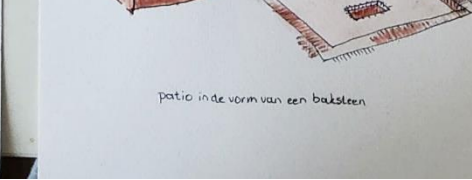 patio in de vorm van een baksteen